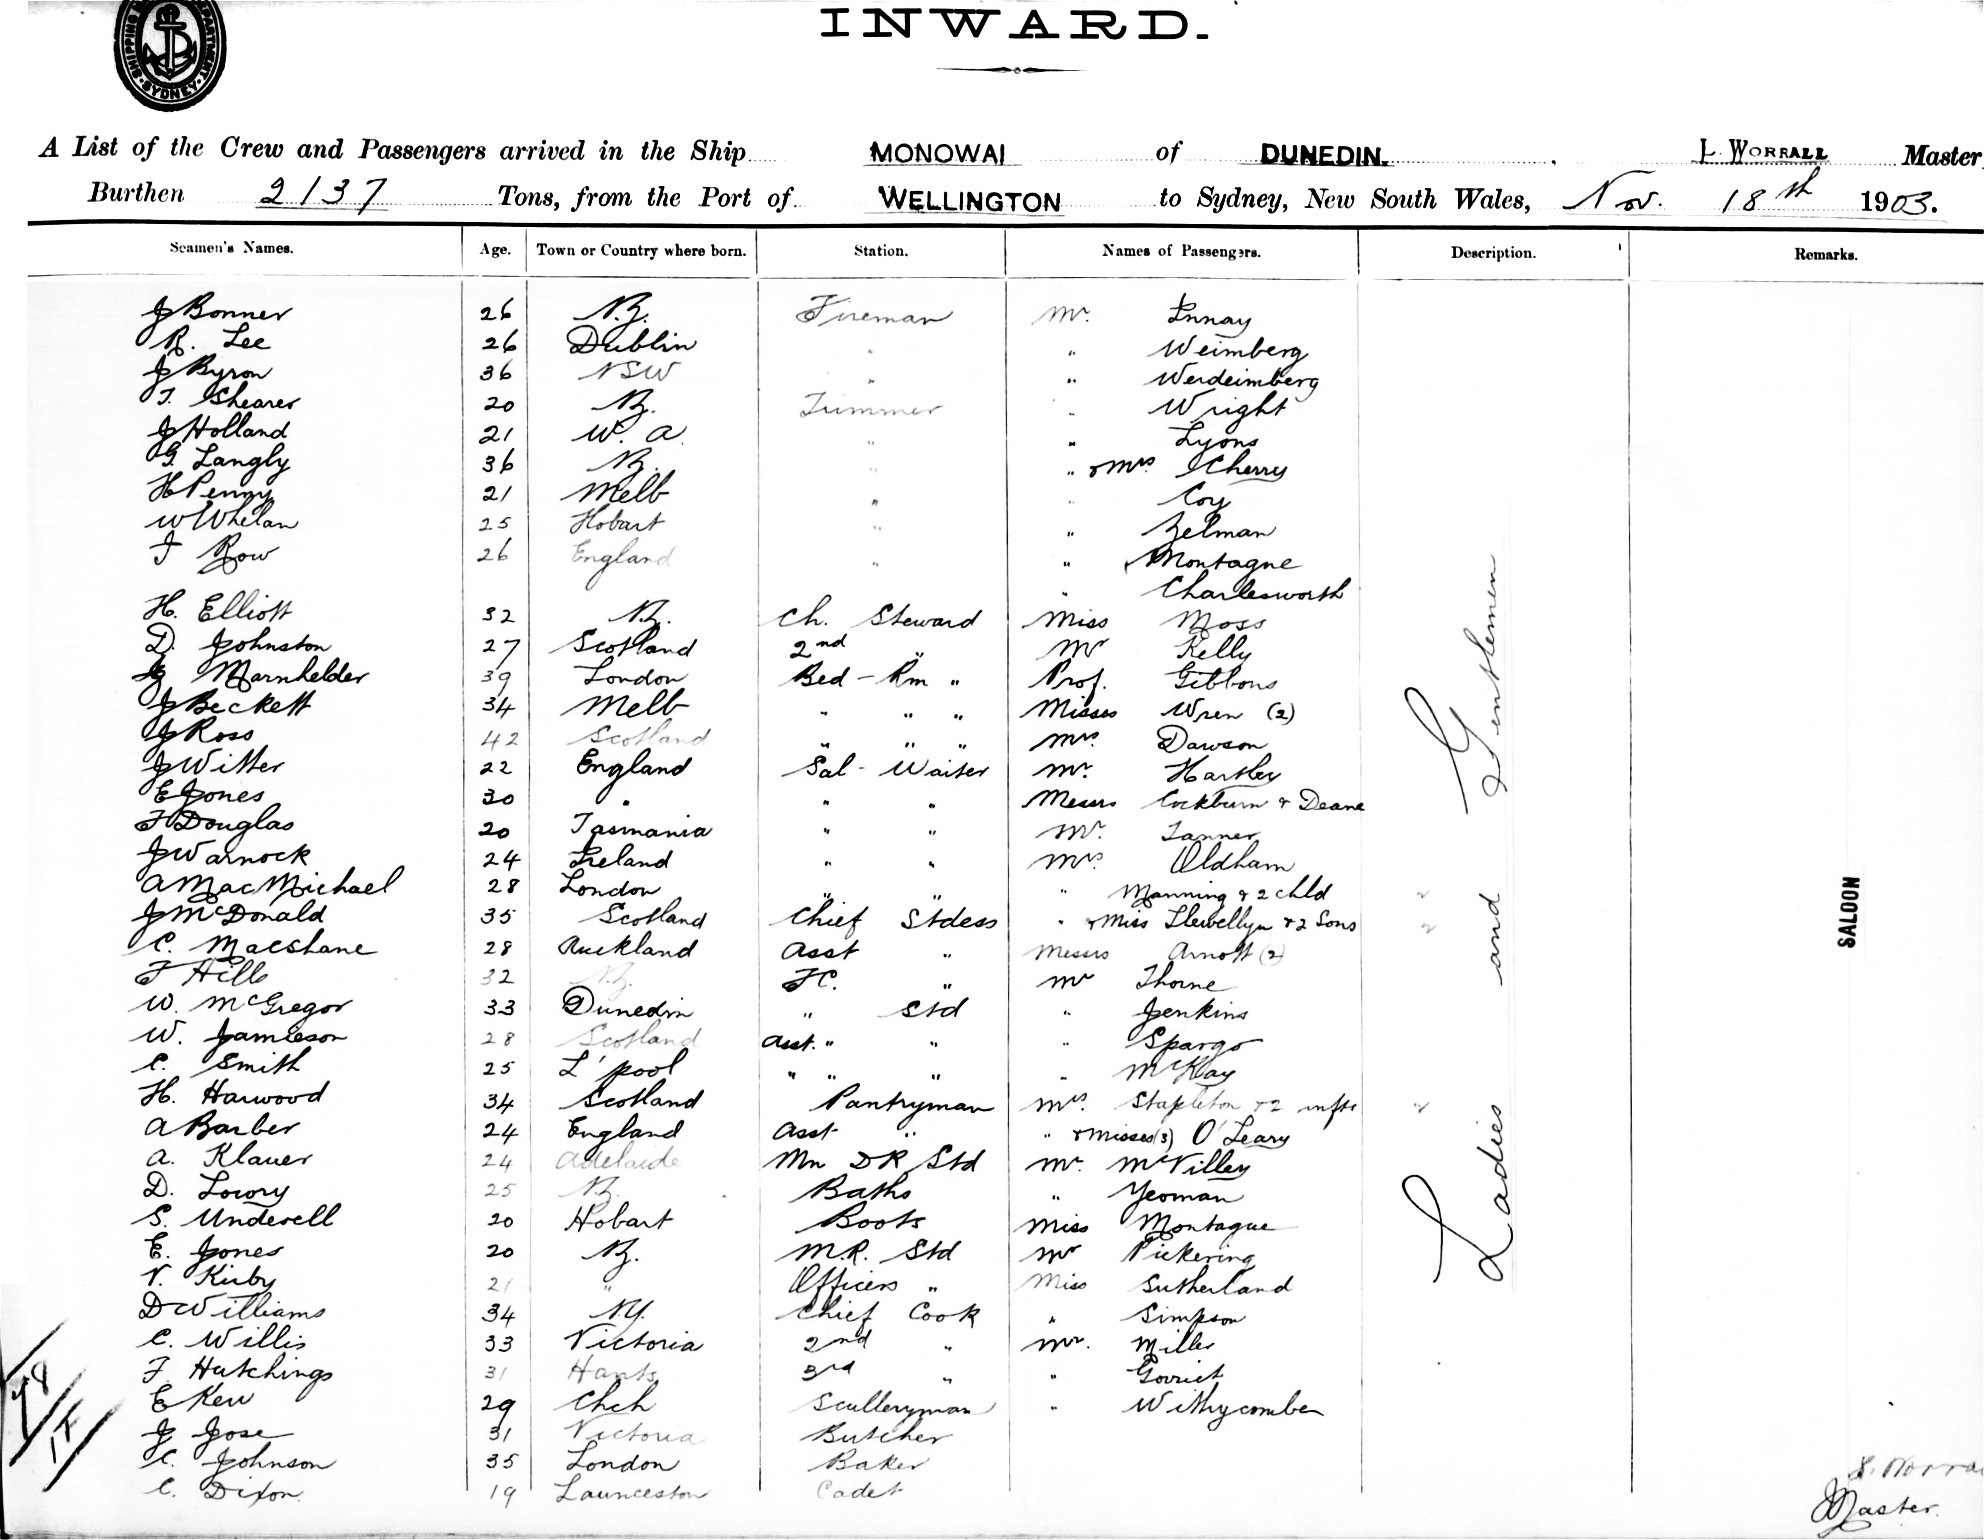 SHIPPING DEPARTMENT SYDNEY
INWARD.
A List of the Crew and Passengers arrived in the Ship MONOWAI of DUNEDIN. L. WORRALL Master
Burthen 2137 Tons, from the Port of WELLINGTON to Sydney, New South Wales, Nov. 18th 1903.
Seamen's Names. Age. Town or Country where born. Station. Names of Passengers. Description. Remarks.
J Bonner 26 N.Z. Fireman Mr.
R. Lee 26 Dublin " " Weimberg
J Byron 36 NSW " " Werdeimberg
T. Shearer 20 N.Z. Trimmer " Wright
J Holland 21 W. A. " " Lyons
G. Langly 36 N.Z. " " & Mrs Cherry
H Penny 21 Melb " " Coy
W Whelan 25 Hobart " " Zelman
J Row 26 England " " Montague
" Charlesworth
H. Elliott 32 N.Z. Ch. Steward Miss Moss
D. Johnston 27 Scotland 2nd " Mr Kelly
G Marnhelder 39 London Bed-Rm " Prof. Gibbons
J Beckett 34 Melb " " " Misses Wren (2)
J Ross 42 Scotland " " " Mrs. Dawson
J Witter 22 England Sal-Waiter Mr. Hartley
E Jones 30 " " " Messrs Cockburn & Deane
F Douglas 20 Tasmania " " Mr. Tanner
J Warnock 24 Ireland " " Mrs Oldham
A MacMichael 28 London " " " Manning & 2 chld
J McDonald 35 Scotland Chief Stdess " & Miss Llewellyn & 2 Sons
C. Macshane 28 Auckland Asst " Messrs Arnott (2)
F Hills 32 N.Z. F.C. " Mr Thorne
W. McGregor 33 Dunedin " Std " Jenkins
W. Jamieson 28 Scotland Asst. " " " Spargo
C. Smith 25 L'pool " " " " McKay
H. Harwood 34 Scotland Pantryman Mrs. Stapleton & 2 infts
A Barber 24 England Asst " " & Misses (3) O'Leary
A. Klauer 24 Adelaide Mn DR Std Mr. McVilley
D. Lowry 25 N.Z. Baths " Yeoman
S. Underell 20 Hobart Boots Miss Montague
E. Jones 20 N.Z. M.R. Std Mr Pickering
V. Kirby 21 " Officers " Miss Sutherland
D Williams 34 N.Y. Chief Cook " Simpson
C. Willis 33 Victoria 2nd " Mr. Miller
F Hutchings 31 Hants 3rd " "
E Kew 29 Chch Sculleryman " Withycombe
J Jose 31 Victoria Butcher
C. Johnson 35 London Baker
C. Dixon 19 Launceston Cadet
Ladies and Gentlemen
SALOON
L. Worrall
Master.